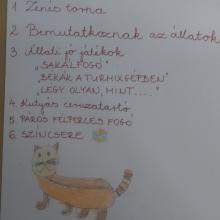 1. Zenés torna
2. Bemutatkoznak az állatok
3. Állati jó játékok
„SAKÁLFOGÓ"
„BÉKÁK A TURMIXGÉPBEN"
„LEGY OLYAN, MINT....."
4. Kutyás ceruzatartó
5. PÁROS FÉLPERCES FOGÓ
6. SZÍNCSERE